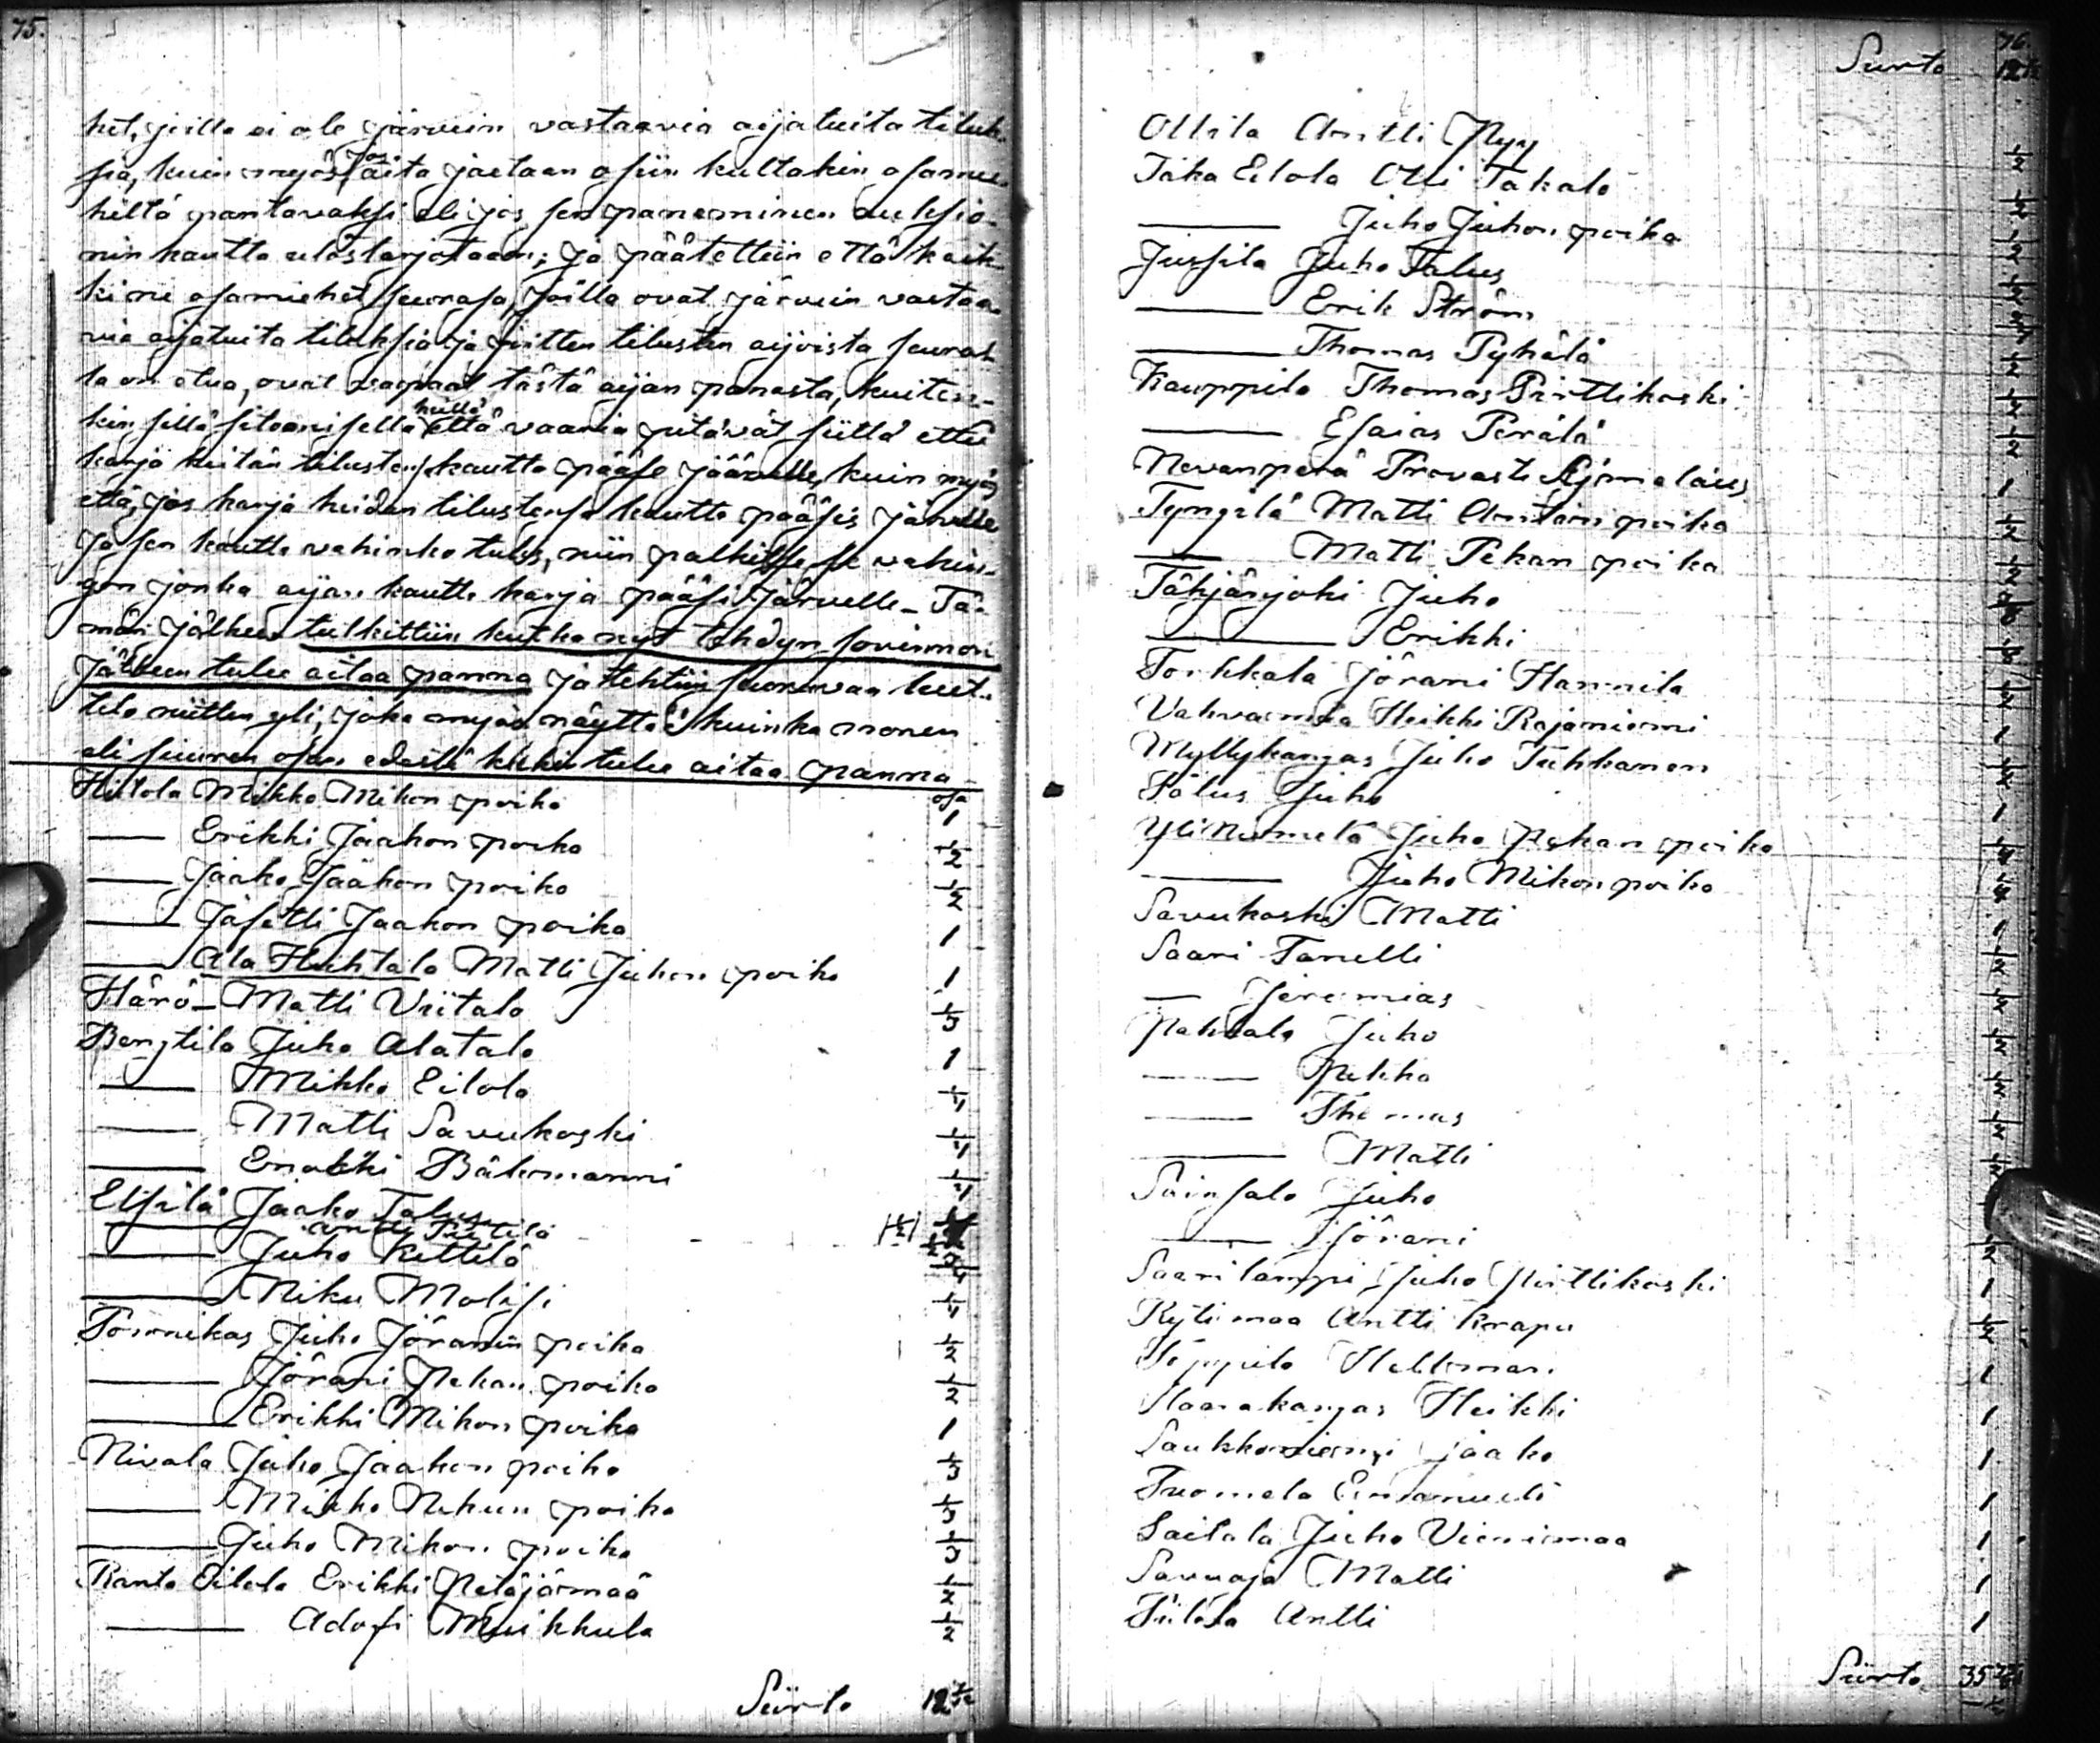 75.
het, joilla ei ole järvein vastaavia aijatuita tiluk-
sia, kuin myös jos aita jaetaan osiin kultakin osamie-
heltä pantavaksi eli jos sen paneminen auksio-
nin kautta ulostarjotaan; Ja päätettiin että kaik-
ki ne osamiehet seurasa, joilla ovat järvein vastaa-
via aijatuita tiluksia ja joitten tilusten aijoista seural-
la on etua, ovat vapaat tästä aijan panosta, kuiten-
kin sillä sitoomisella että vaaria pitävät siittä ettei
karja heitän tilusten kautta pääse järvelle, kuin myös
että, jos karja heidän tilustensa kautta pääsis järvelle
ja sen kautta vahinko tulis, niin palkitsee se vahin-
gon jonka aijan kautta karja pääsi järvelle_ Tä-
män jälkeen tulkittiin kutka nyt tehdyn sovinnon
jälkeen tulee aitaa panna ja tehtiin seuraavaa luet-
telo niitten yli, joka myös näyttää kuinka monen
eli suuren osan edestä kukin tulee aitaa panna_
osa
Hillola Mikko Mikon poika 1
—— Erikki Jaakon poika 1/2
—— Jaako Jaakon poika 1/2
—— Jafetti Jaakon poika 1
—— Ala Huhtala Matti Juhon poika 1
Härö_ Matti Viitala 1/3
Bengtila Juho Alatalo 1
—— Mikko Eilola 1/4
—— Matti Savukoski 1/4
—— Bäkmanni 1/4
Elsilä Jaako Talus
—— Antti Piirtilä
—— Juho Kettilä
—— Niku Molisi 1/4
Törmikas Juho Jöranin poika 1/2
—— Jörani Pekan poika 1/2
—— Erikki Mikon poika 1
Nivala Juho Jaakon poika 1/3
—— Mikko Nikun poika 1/3
—— Juho Mikon poika 1/3
Ranta Eilola Erikki Petäjämaa 1/2
—— Adolfi Muikkula 1/2
Siirto
76.
Siirto
Ollila Antti Nyy 1/2
Taka Eilola Olli Takalo 1/2
—— Juho Juhon poika 1/2
Jussila Juho Talus
—— Erik Ström
—— Thomas Pyhälä 1/2
Kauppila Thomas Pirttikoski 1/2
—— Esaias Perälä 1/2
Nevanperä Provasti Äjmelaeus 1
Tyngilä Matti Antin poika 1/2
—— Matti Pekan poika 1/2
Tähjänjoki Juho
—— Erikki
Torkkala Jörani Hannila 1/2
Vahvasmaa Heikki Rajaniemi 1
Myllykangas Juho Tuhkanen 1/2
Talus Juho 1
Yliniemelä Juho Pekan poika
—— Juho Mikon poika
Savukoski Matti 1
Saari Tanelli 1/2
— Jeremias 1/2
Pahtala Juho 1/2
—— Pekka 1/2
—— Thomas 1/2
—— Matti 1/2
Sainsalo Juho
—— Jörani 1/2
Saarilampi Juho Pirttikoski 1
Kytimaa Antti Krapu 1/2
Töppilä Hellman 1
Haarakangas Heikki 1
Saukkoniemi Jaako 1
Tuomela Emanueli 1
Lailala Juho Vieniemaa 1
Savuoja Matti 1
Antti 1
Siirto